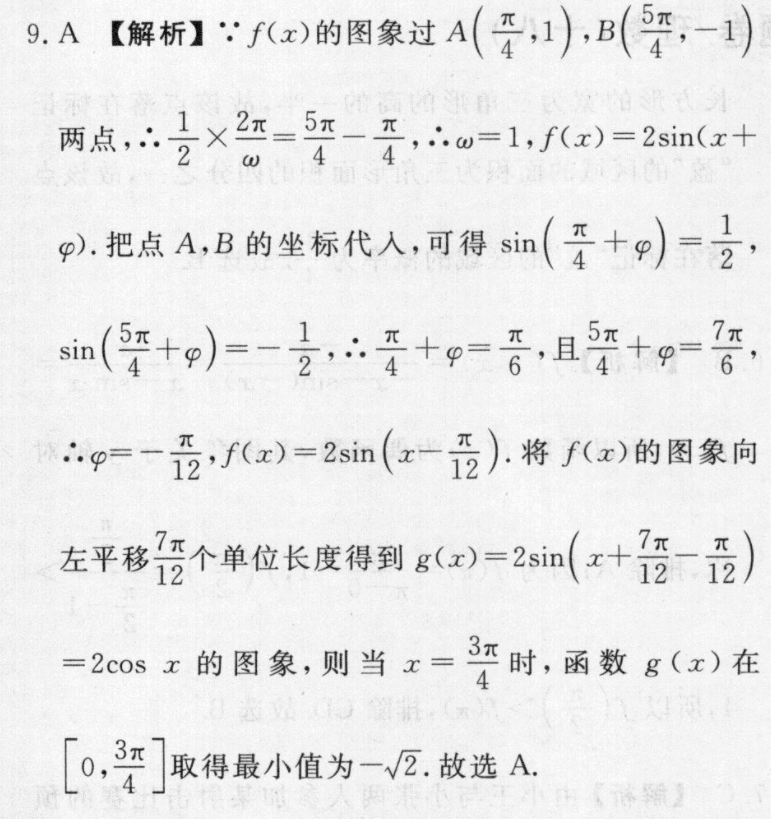 9. A 【解析】∵ f(x)的图象过 A(π/4,1),B(5π/4,-1)
两点,∴1/2×2π/ω=5π/4-π/4,∴ω=1,f(x)=2sin(x+
φ).把点 A,B 的坐标代人,可得 sin(π/4+φ)=1/2,
sin(5π/4+φ)=-1/2,∴π/4+φ=π/6,且5π/4+φ=7π/6,
∴φ=-π/12,f(x)=2sin(x-π/12).将 f(x)的图象向
左平移7π/12个单位长度得到 g(x)=2sin(x+7π/12-π/12)
=2cos x 的图象,则当 x=3π/4时,函数 g(x)在
[0,3π/4]取得最小值为-√2.故选 A.